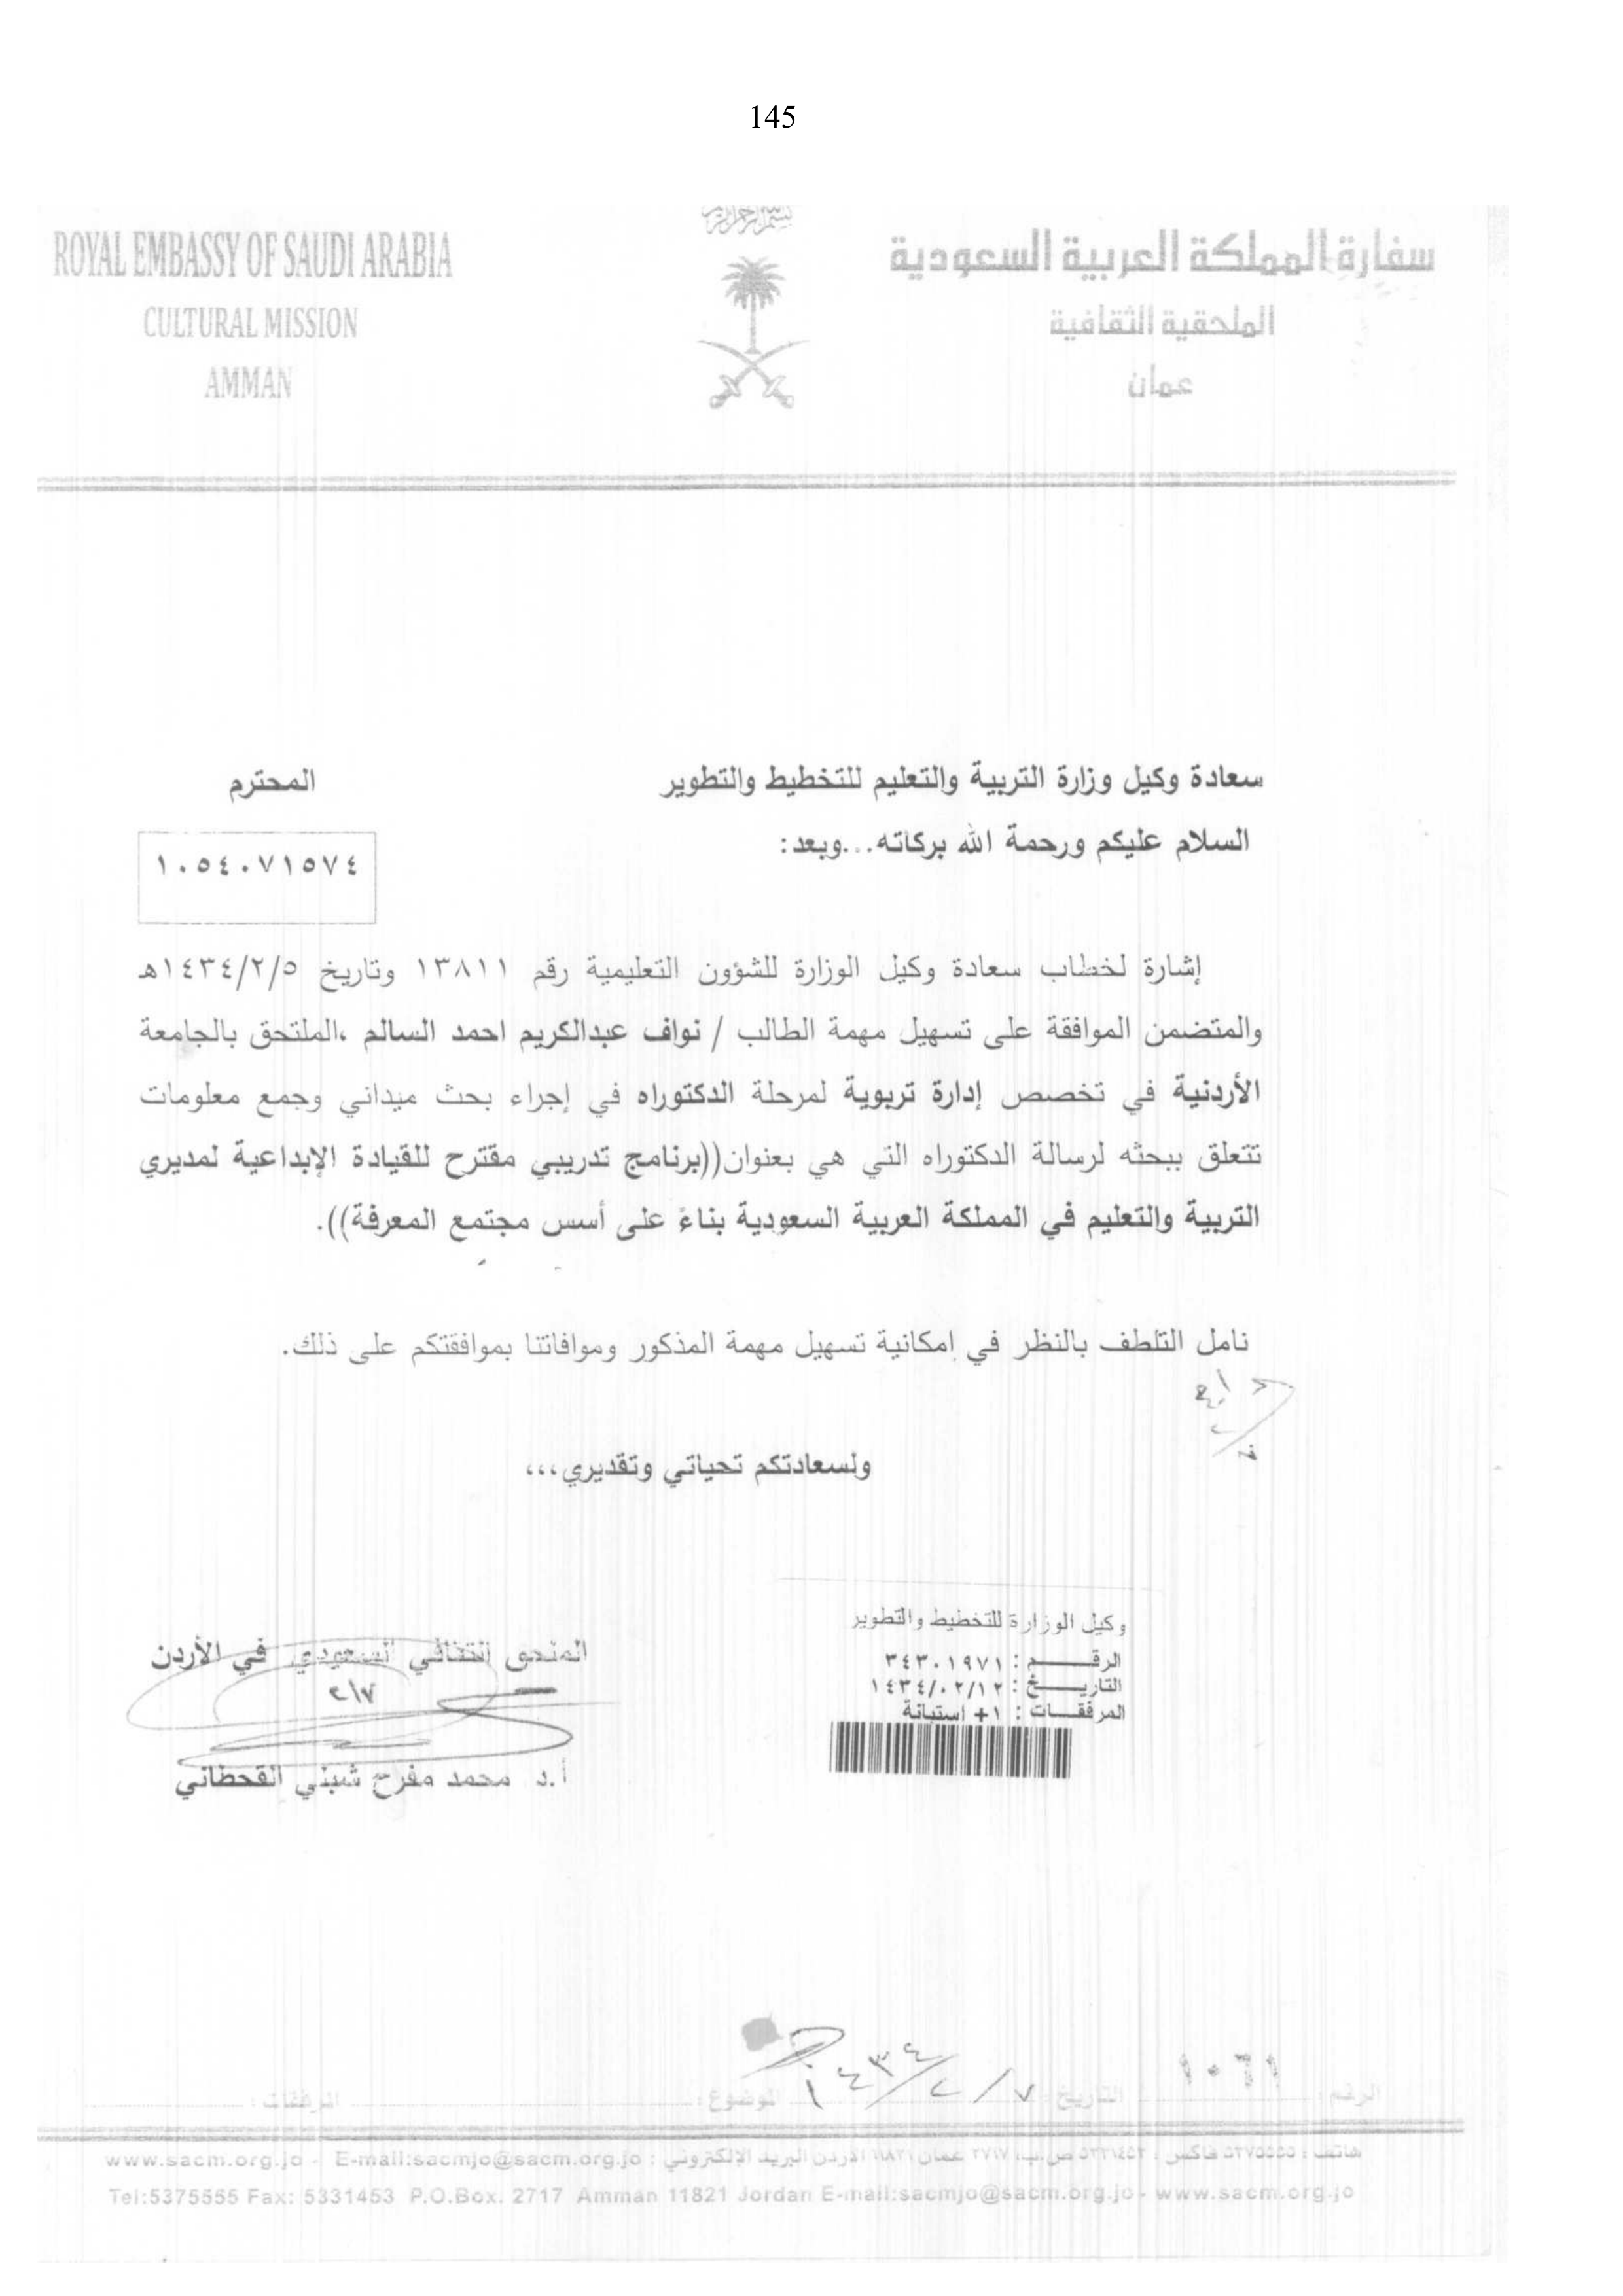 145
بسم الله الرحمن الرحيم
ROYAL EMBASSY OF SAUDI ARABIA
سفارة المملكة العربية السعودية
CULTURAL MISSION
الملحقية الثقافية
AMMAN
عمان
سعادة وكيل وزارة التربية والتعليم للتخطيط والتطوير المحترم
السلام عليكم ورحمة الله بركاته...وبعد:
١٠٥٤٠٧١٥٧٤
إشارة لخطاب سعادة وكيل الوزارة للشؤون التعليمية رقم ١٣٨١١ وتاريخ ١٤٣٤/٢/٥هـ
والمتضمن الموافقة على تسهيل مهمة الطالب / نواف عبدالكريم احمد السالم ،الملتحق بالجامعة
الأردنية في تخصص إدارة تربوية لمرحلة الدكتوراه في إجراء بحث ميداني وجمع معلومات
تتعلق ببحثه لرسالة الدكتوراه التي هي بعنوان((برنامج تدريبي مقترح للقيادة الإبداعية لمديري
التربية والتعليم في المملكة العربية السعودية بناءً على أسس مجتمع المعرفة)).
نامل التلطف بالنظر في إمكانية تسهيل مهمة المذكور وموافاتنا بموافقتكم على ذلك.
ولسعادتكم تحياتي وتقديري،،،
وكيل الوزارة للتخطيط والتطوير
الرقم : ٣٤٣٠١٩٧١
التاريخ : ١٤٣٤/٠٢/١٢
المرفقات : ١+ استبانة
الملحق الثقافي السعودي في الأردن
٢/٧
أ.د محمد مفرح شبلي القحطاني
الرقم : ١٠٦١ التاريخ : ١٤٣٤/٢/٧ الموضوع : المرفقات :
هاتف : ٥٣٧٥٥٥٥ فاكس : ٥٣٣١٤٥٣ ص.ب. ٢٧١٧ عمان ١١٨٢١ الأردن البريد الإلكتروني : www.sacm.org.jo - E-mail:sacmjo@sacm.org.jo
Tel:5375555 Fax: 5331453 P.O.Box. 2717 Amman 11821 Jordan E-mail:sacmjo@sacm.org.jo - www.sacm.org.jo